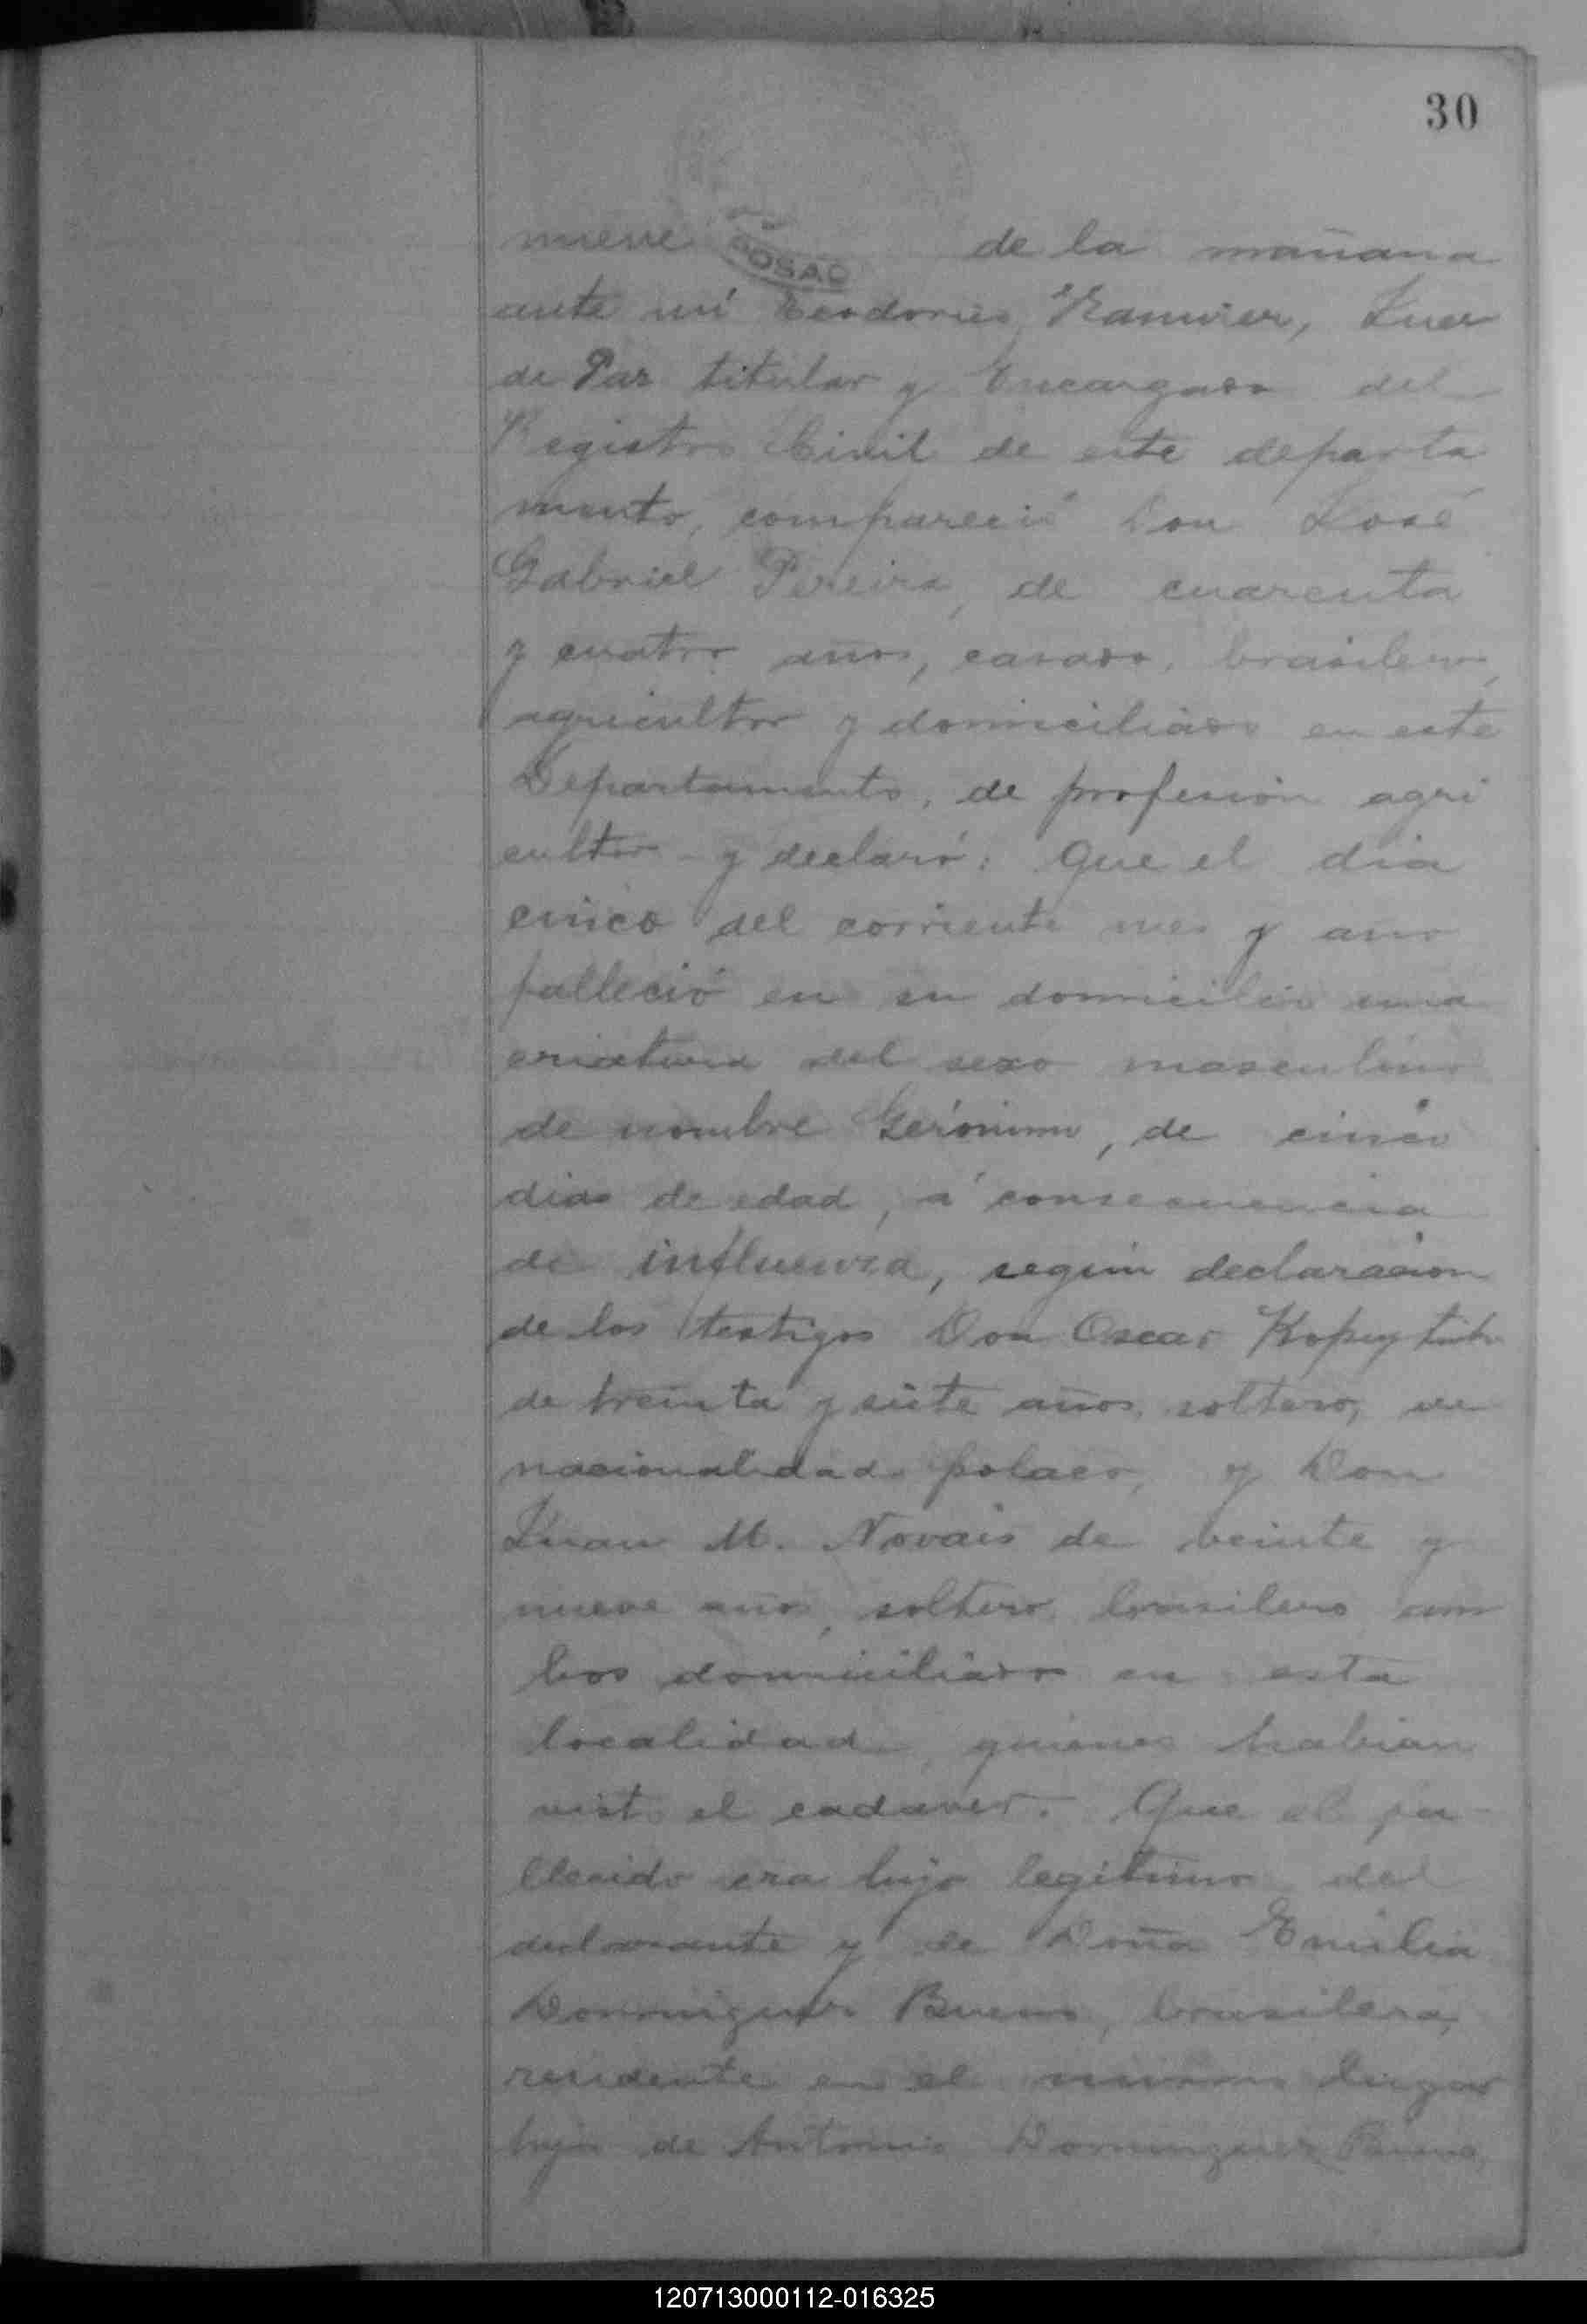 30
nueve de la mañana
ante mí Teodorico Ranvier, Juez
de Paz titular y Encargado del
Registro Civil de este departa
mento, compareció Don José
Gabriel Pereira, de cuarenta
y cuatro años, casado, brasilero,
agricultor y domiciliado en este
Departamento, de profesión agri
cultor y declaró: Que el dia
cinco del corriente mes y año
falleció en su domicilio una
criatura del sexo masculino
de nombre Gerónimo, de cinco
dias de edad, á consecuencia
de influenza, según declaración
de los testigos Don Oscar
de treinta y siete años, soltero, de
nacionalidad polaco, y Don
Juan M. Novais de veinte y
nueve años, soltero, brasilero am
bos domiciliados en esta
localidad, quienes habian
visto el cadaver. Que el fa-
llecido era hijo legitimo del
declarante y de Doña Emilia
Dominguez Bueno, brasilera,
residente en el mismo lugar
hija de Antonio Dominguez Bueno,
120713000112-016325